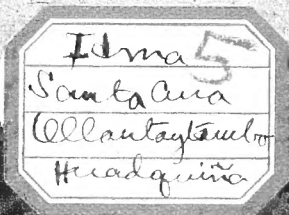 Idma 5
Santa Ana
Ollantaytambo
Huadquiña